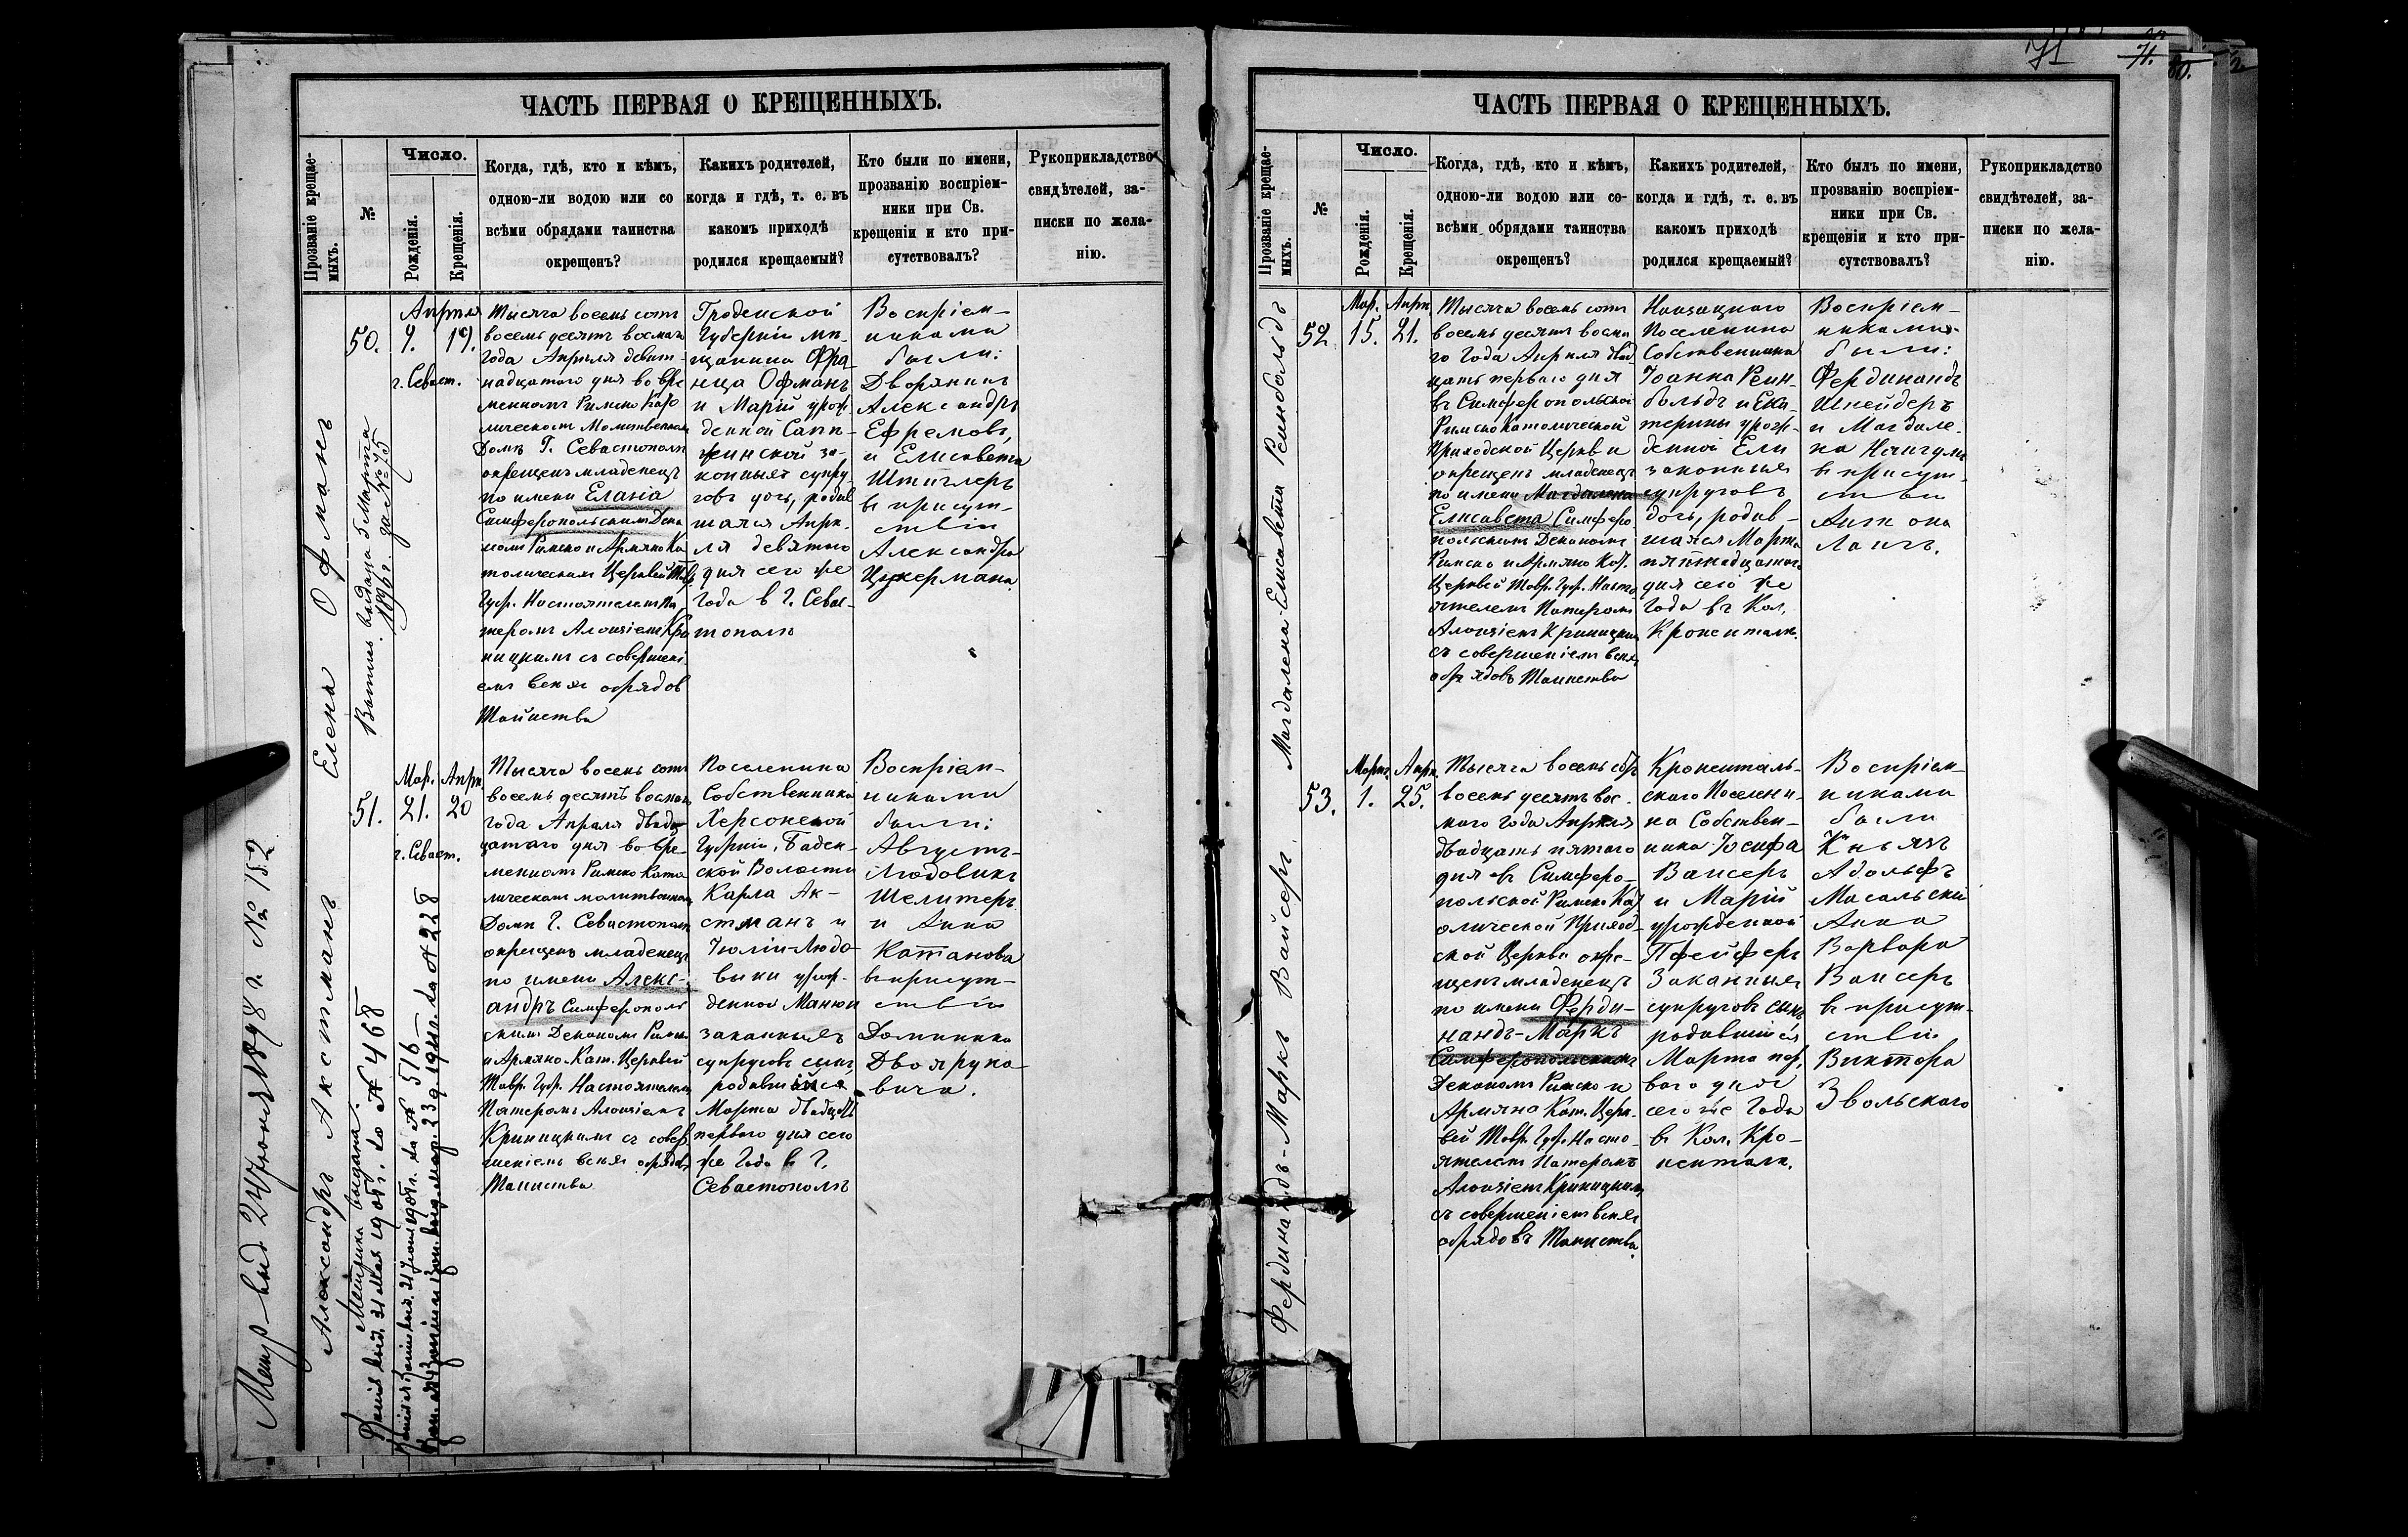 ЧАСТЬ ПЕРВАЯ О КРЕЩЕННЫХЪ.
Прозваніе крещае-
мыхъ.
№
Число.
Рожденія.
Крещенія.
Когда, гдѣ, кто и кѣмъ,
одною-ли водою или со
всѣми обрядами таинства
окрещенъ?
Какихъ родителей,
когда и гдѣ, т. е. въ
какомъ приходѣ
родился крещаемый?
Кто были по имени,
прозванію воспріем-
ники при Св.
крещеніи и кто при-
сутствовалъ?
Рукоприкладство
свидѣтелей, за-
писки по жела-
нію.
Елена Офманъ
выдана 5 Марта
1896 г. за № 75
50.
Апрѣля
9. 19.
г. Севаст.
Тысяча восемь сотъ
восемь десятъ восмаго
года Апрѣля девят-
надцатаго дня во вре
менномъ Римско Като
лическомъ Молитвенномъ
Домѣ Г. Севастополя
окрещенъ младенецъ
по имени Еланіа
Симферопольскимъ Дека
номъ Римско и Армяно Ка
толическихъ Церквей Тавр.
Губ. Настоятелемъ Па
теромъ Алоизіемъ Кри
ницкимъ съ совершені
емъ всѣхъ обрядов
Таинства
Гродненской
Губерніи мѣ-
щанина Фра
нца Офманъ
и Маріи урож
денной Сапп-
жинской за-
конныхъ супру-
говъ дочь, родив
шаяся Апрѣ-
ля девятаго
дня сего же
Года в Г. Севас-
тополѣ
Воспріем-
никами
были:
Дворянинъ
Александръ
Ефремовъ,
и Елисавета
Штиглеръ
в присут-
ствіи
Александра
Цукермана.
Метр. выд. 24 Іюня 1898 г. № 152
Александръ Акстманъ
Метрика выдана.
выд. 31 Мая 1905 г. за № 468
выд. 21 Іюня 1905 г. за № 516
23 д. 1911 г. за № 228
51.
Мар. Апрѣ.
21. 20
г. Севаст.
Тысяча восемь сотъ
восемь десятъ восмаго
года Апрѣля двад
цатаго дня во вре-
менномъ Римско Като
лическомъ молитвенномъ
Домѣ Г. Севастополя
окрещенъ младенецъ
по имени Алекс-
андръ Симферополь
скимъ Деканомъ Римско
и Армяно Кат. Церквей
Тавр. Губ. Настоятелемъ
Патеромъ Алоизіемъ
Криницкимъ съ совер
шеніемъ всѣхъ обрядовъ
Таинства
Поселенина
Собственника
Херсонской
Губерніи, Баден-
ской Волости
Карла Ак-
стманъ и
Юліи-Людо-
вики урож-
денной
законныхъ
супруговъ сынъ,
родившійся
Марта двадцать
перваго дня сего
же Года в Г.
Севастополѣ
Воспріем-
никами
были:
Августъ-
Людовикъ
Шелитеръ
и Анна
Катанова
въ присут-
ствіи
Доминика
Двоярупо-
вича.
71
71.
80.
ЧАСТЬ ПЕРВАЯ О КРЕЩЕННЫХЪ.
Прозваніе крещае-
мыхъ.
№
Число.
Рожденія.
Крещенія.
Когда, гдѣ, кто и кѣмъ,
одною-ли водою или со-
всѣми обрядами таинства
окрещенъ?
Какихъ родителей,
когда и гдѣ, т. е. въ
какомъ приходѣ
родился крещаемый?
Кто былъ по имени,
прозванію воспріем-
ники при Св.
крещеніи и кто при-
сутствовалъ?
Рукоприкладство
свидѣтелей, за-
писки по жела-
нію.
Магдалена Елисавета Реинбольдъ
52
Мар. Апрѣ.
15. 21.
Тысяча восемь сотъ
восемь десятъ восма
го Года Апрѣля двад
цать перваго дня
въ Симферопольской
Римско католической
Приходской Церкви
окрещенъ младенецъ
по имени Магдалена
Елисавета Симферо
польскимъ Деканомъ
Римско и Армяно Кат.
Церквей Тавр. Губ. Насто
ятелемъ Патеромъ
Алоизіемъ Криницкимъ
съ совершеніемъ всѣхъ
обрядовъ Таинства
Поселенина
Собственника
Іоанна Реин-
больдъ и Ека-
терины урож-
денной Ели
законныхъ
супруговъ
дочь, родив-
шаяся Марта
пятнадцатаго
дня сего же
Года въ Кол.
Кроненталь.
Воспріем-
никами
были:
Фердинандъ
Шнейдеръ
и Магдале-
на
в присут-
ствіи
Антона
Лангъ.
Фердинандъ-Маркъ Вайсеръ.
53.
Март. Апрѣ.
1. 25.
Тысяча восемь сотъ
восемь десятъ вос-
маго Года Апрѣля
двадцать пятаго
дня въ Симферо-
польской Римско Кат
олической Приход-
ской Церкви окре-
щенъ младенецъ
по имени Ферди-
нандъ-Маркъ
Симферопольскимъ
Деканомъ Римско и
Армяно Кат. Церк-
вей Тавр. Губ. Насто-
ятелемъ Патеромъ
Алоизіемъ Криницкимъ
съ совершеніемъ всѣхъ
обрядовъ Таинства.
Кроненталь-
скаго Поселени-
на Собствен-
ника Іосифа
Вайсеръ
и Маріи
урожденной
Пфейферъ
Законныхъ
супруговъ сынъ
родившійся
Марта пер-
ваго дня
сего же Года
въ Кол. Кро-
ненталь.
Воспріем-
никами
были
Князь
Адольфъ
Масальскій
Анна
Варвара
Вайсеръ
в присут-
ствіи
Виктора
Звольскаго